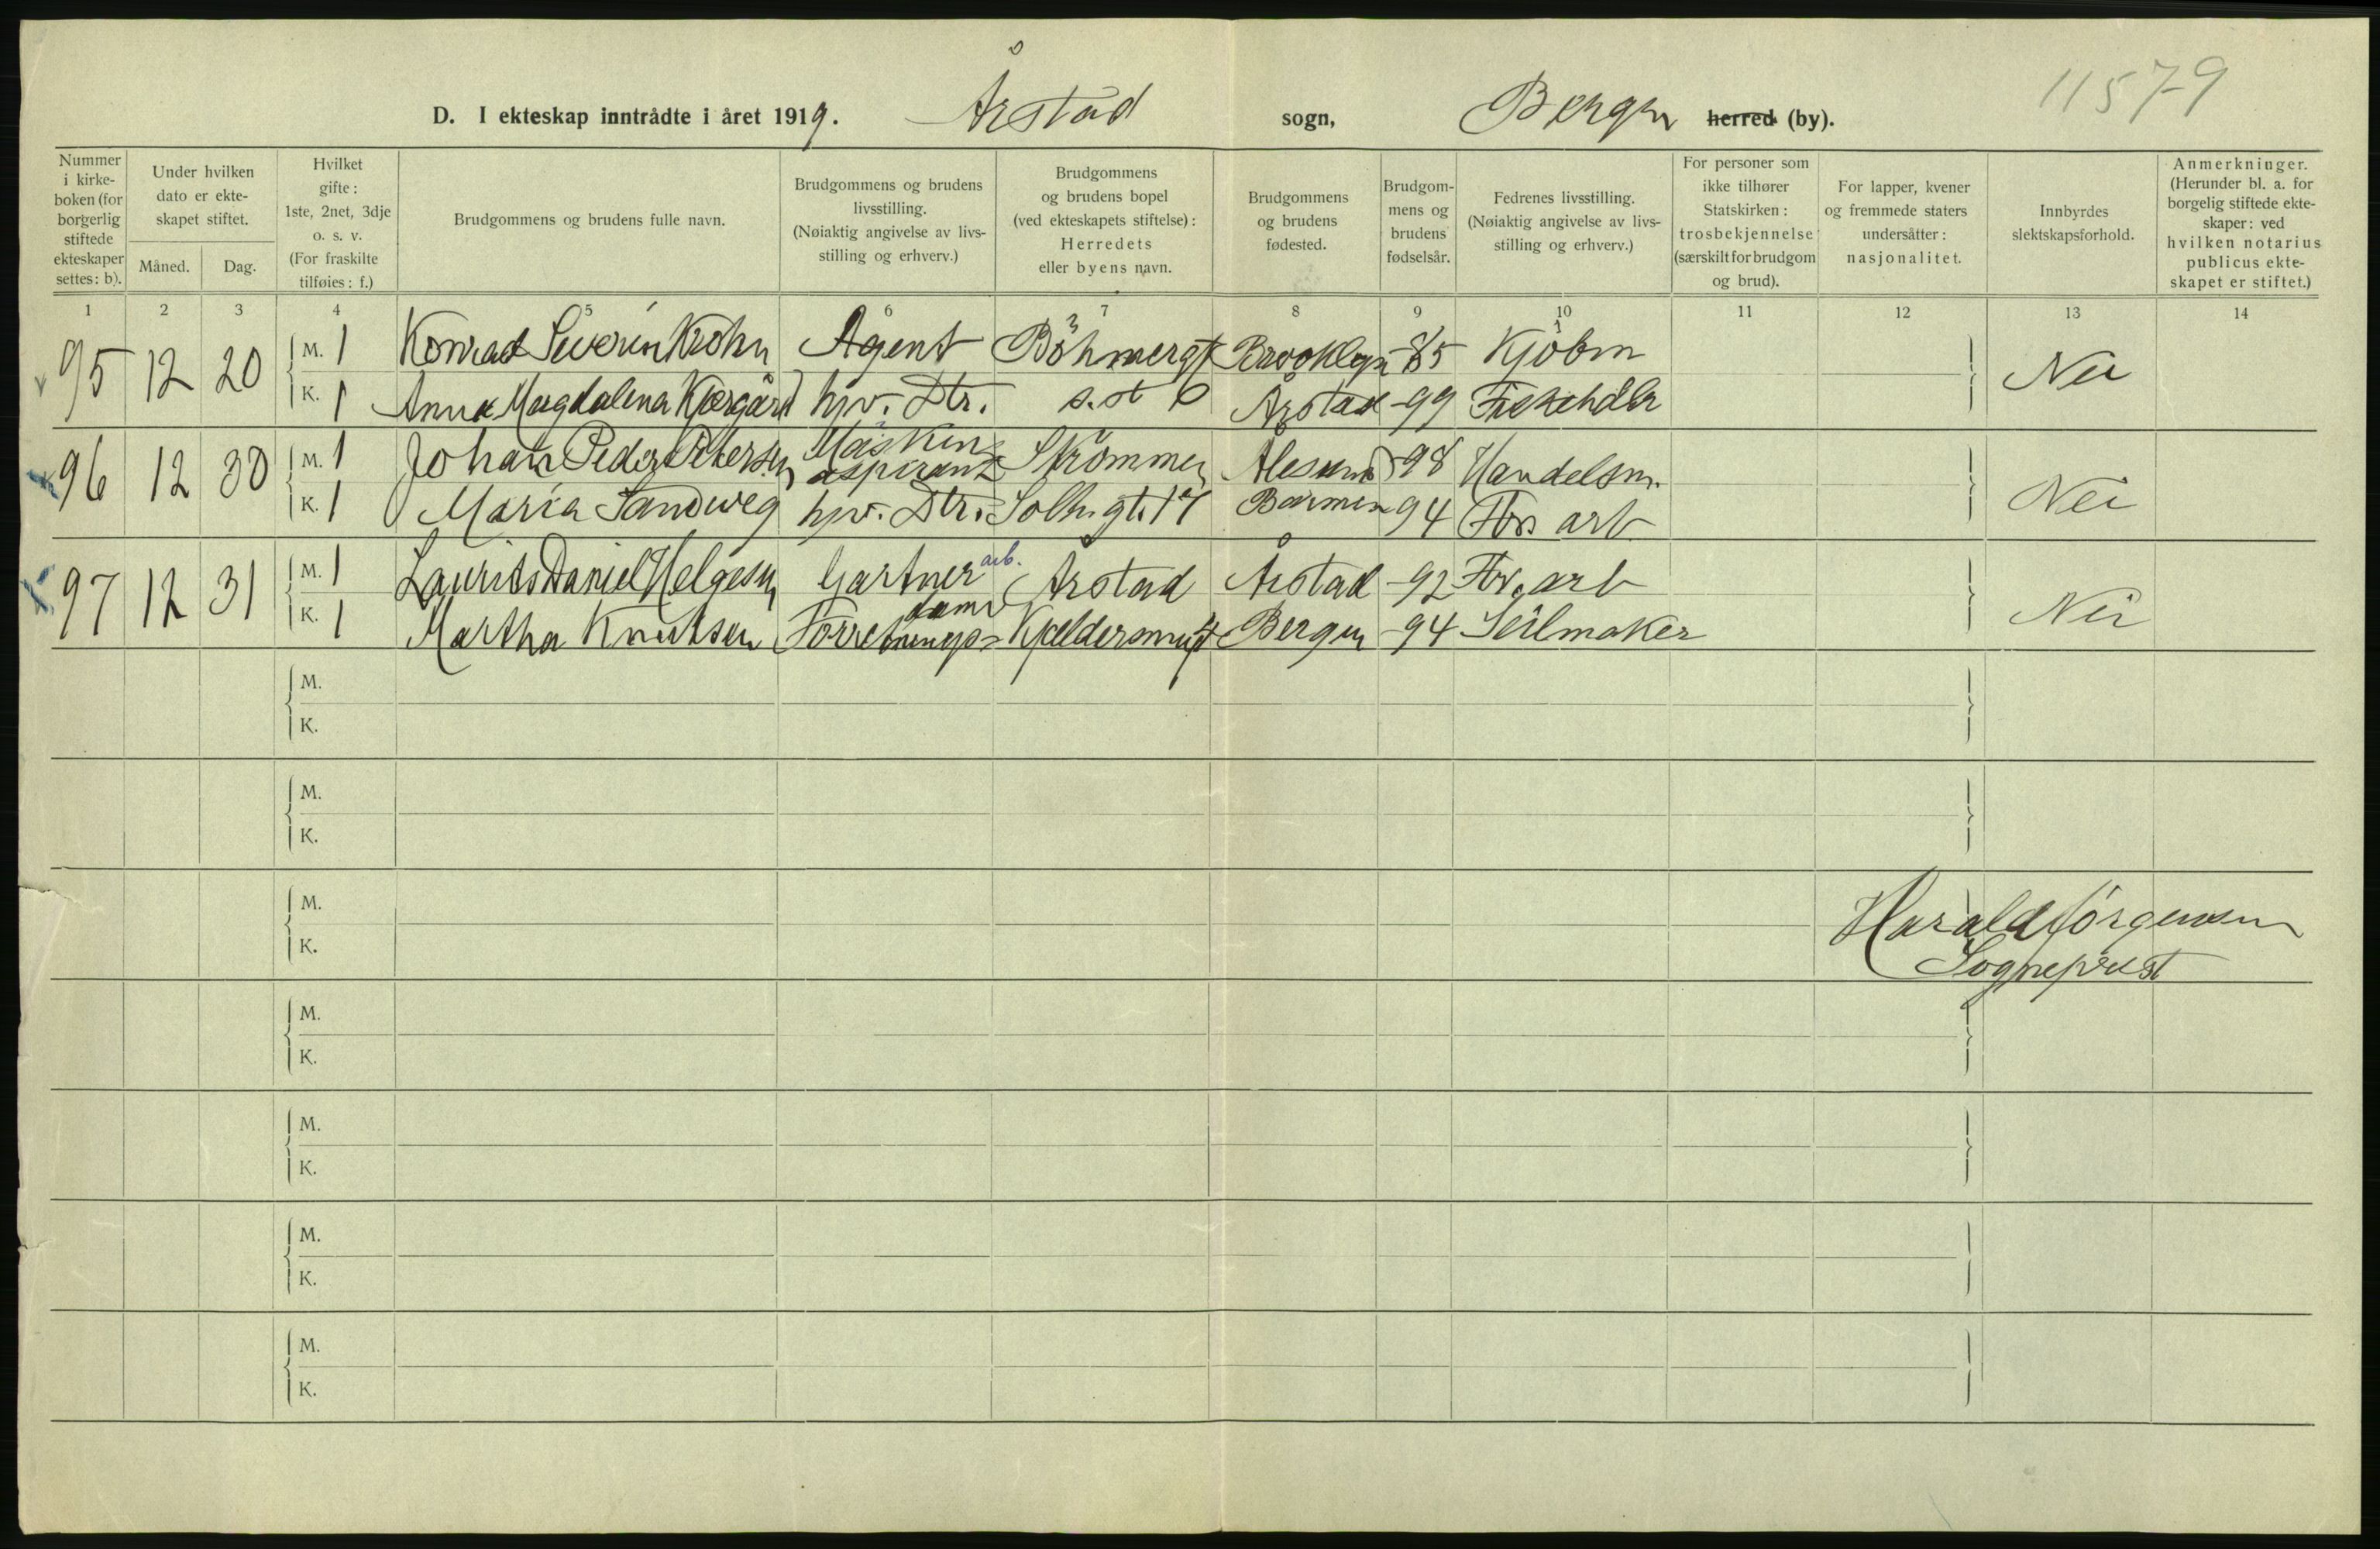 11579
D. I ekteskap inntrådte i året 1919. Årstad sogn, Bergen herred (by).
Nummer i kirke-boken (for borgerlig stiftede ekteskaper settes: b).
Under hvilken dato er ekte-skapet stiftet.
Måned. Dag.
Hvilket gifte: 1ste, 2net, 3dje o. s. v. (For fraskilte tilføies: f.)
Brudgommens og brudens fulle navn.
Brudgommens og brudens livsstilling. (Nøiaktig angivelse av livs-stilling og erhverv.)
Brudgommens og brudens bopel (ved ekteskapets stiftelse): Herredets eller byens navn.
Brudgommens og brudens fødested.
Brudgom-mens og brudens fødselsår.
Fedrenes livsstilling. (Nøiaktig angivelse av livs-stilling og erhverv.)
For personer som ikke tilhører Statskirken: trosbekjennelse (særskilt for brudgom og brud).
For lapper, kvener og fremmede staters undersåtter: nasjonalitet.
Innbyrdes slektskapsforhold.
Anmerkninger. (Herunder bl. a. for borgelig stiftede ekte-skaper: ved hvilken notarius publicus ekte-skapet er stiftet.)
1 2 3 4 5 6 7 8 9 10 11 12 13 14
95 12 20 M. 1 Konrad Severin Krohn Agent Böhmergt Brooklyn -85 Kjöbm Nei
K. 1 Anna Magdalena Kjærgård hjv. Dtr. s. st 6 Årstad -99 Fiskehdlr
96 12 30 M. 1 Johan Peder Petersen Maskin-aspirant Strömmen Ålesund 98 Handelsm. Nei
K. 1 Maria Sandweg hjv. Dtr. Solh.gt. 17 Barmen 94 Fbr. arb
97 12 31 M. 1 Laurits Daniel Helgesen Gartner arb. Årstad Årstad -92 Fbr. arb Nei
K. 1 Martha Knutsen Forretnings-dame Kjeldersmugt Bergen -94 Seilmaker
M.
K.
M.
K.
M.
Harald Jörgensen
K.
Sogneprest
M.
K.
M.
K.
M.
K.
M.
K.